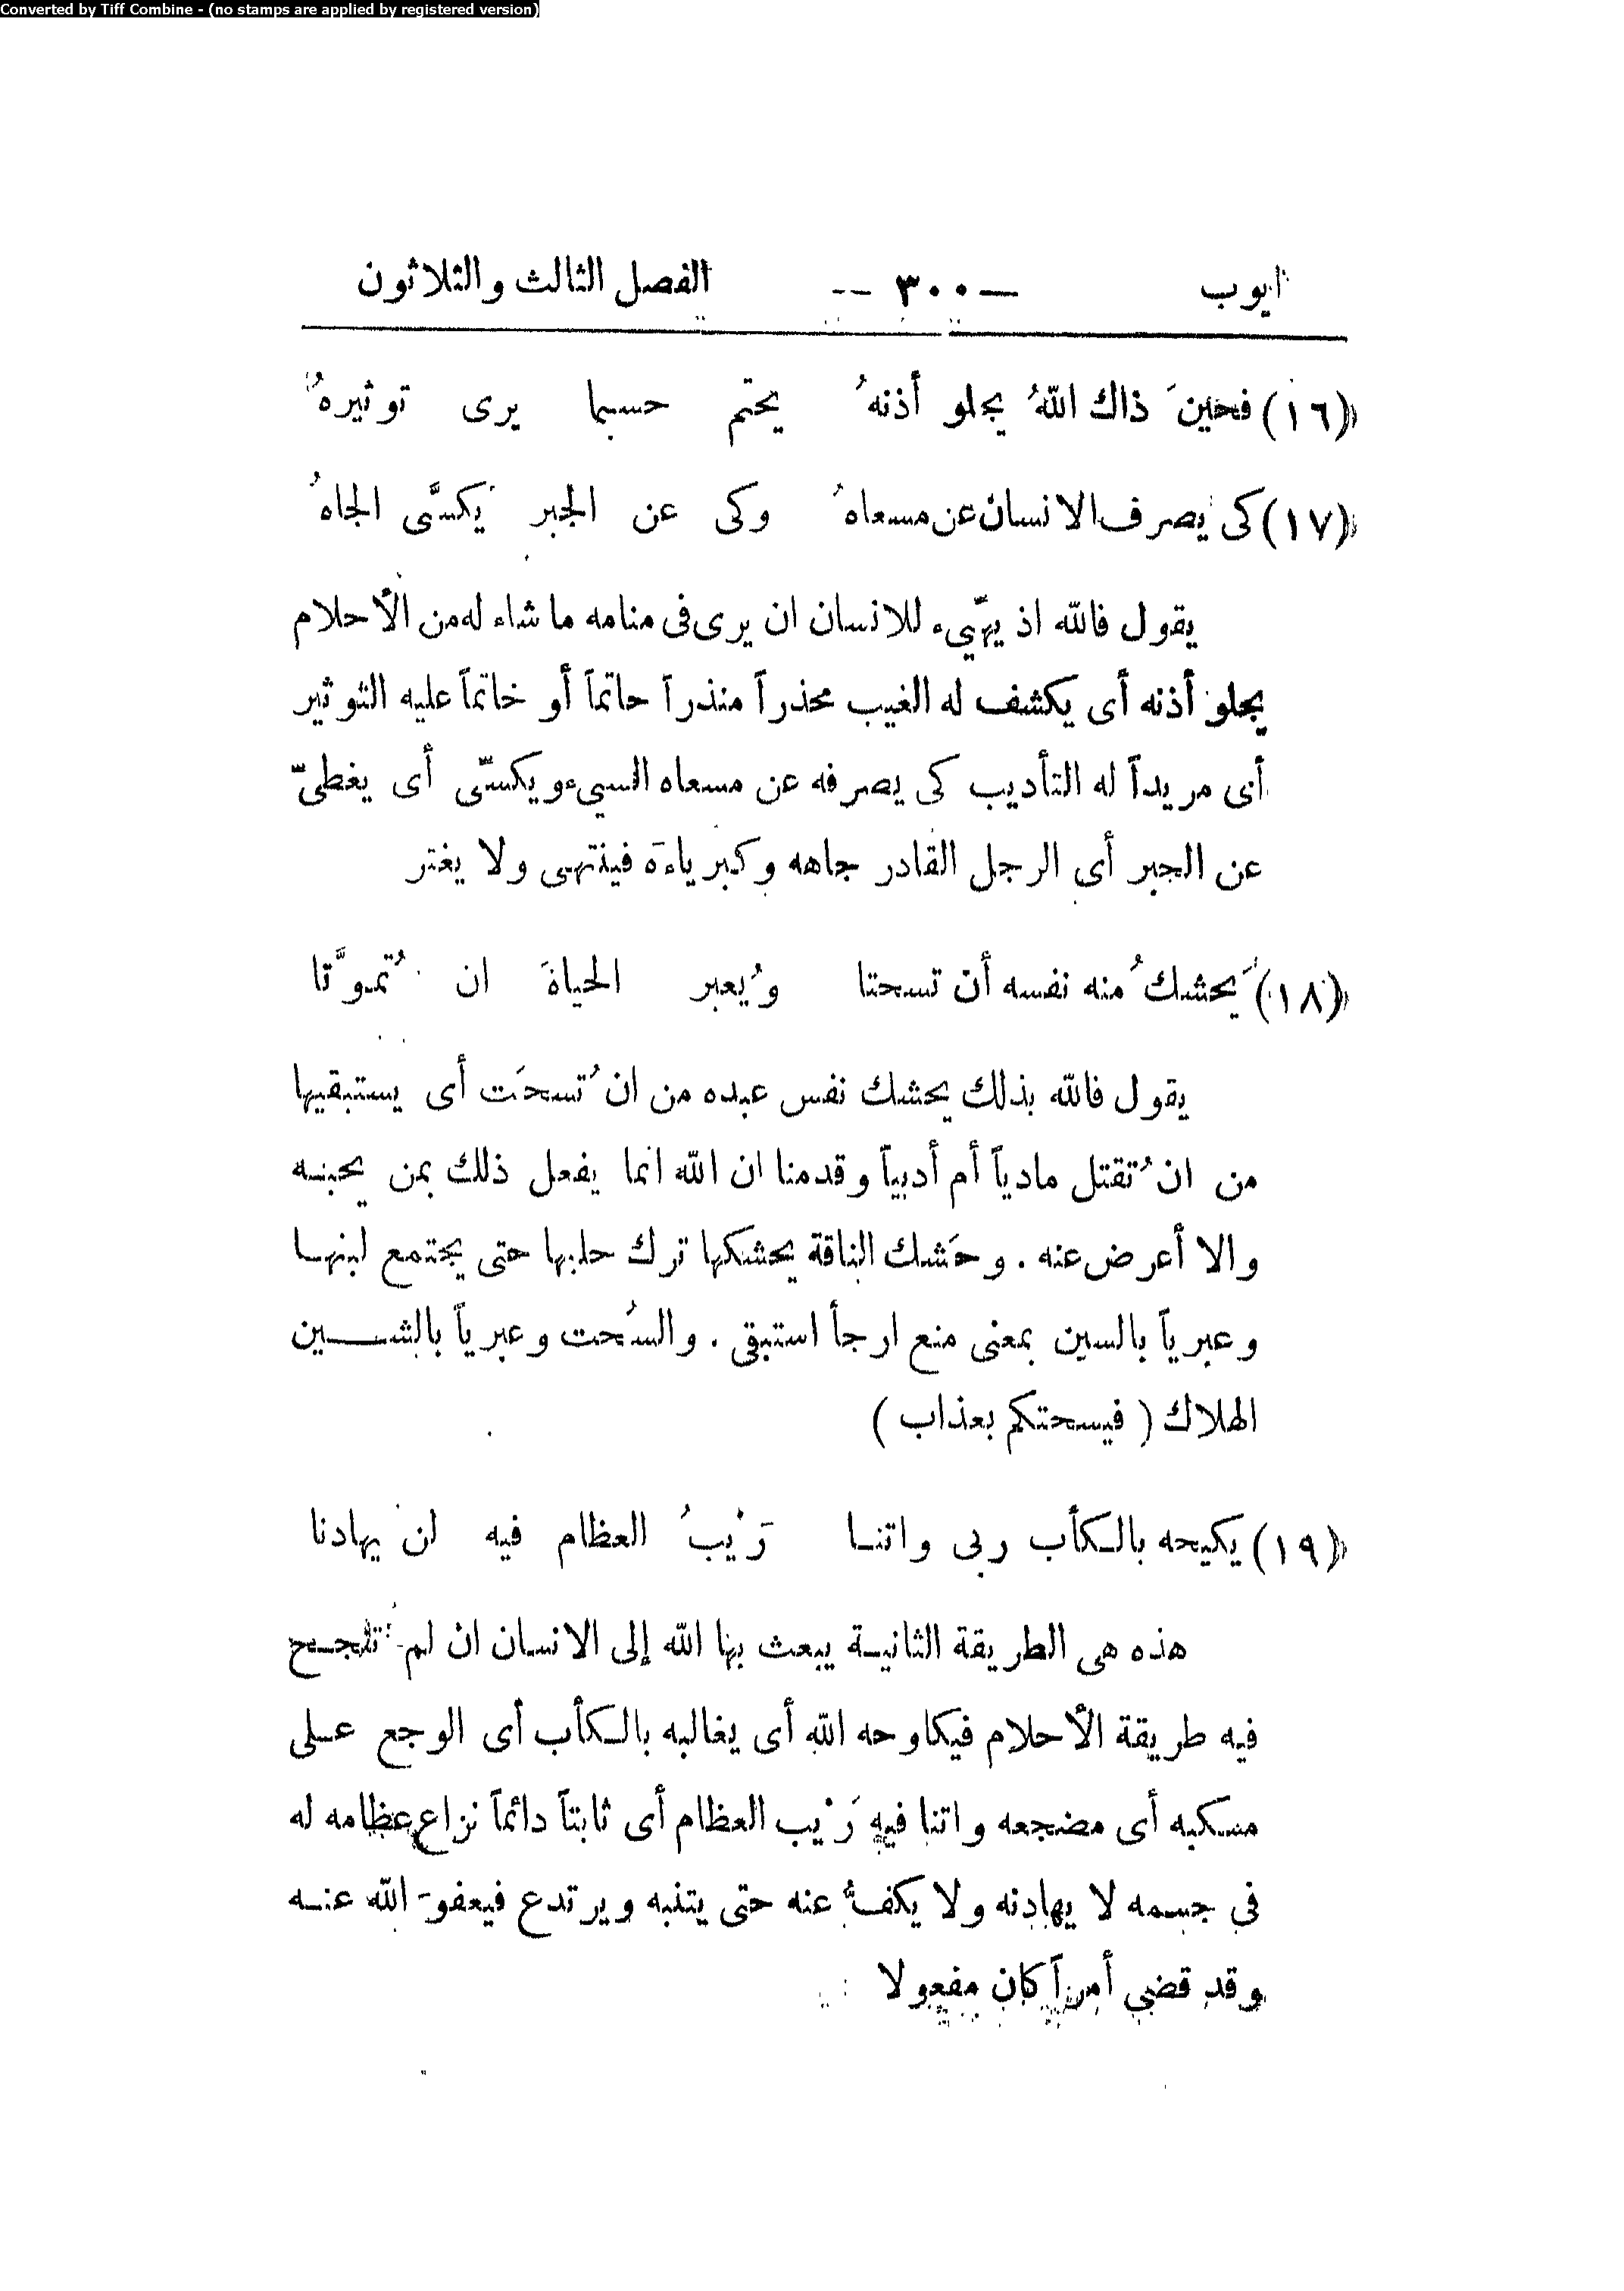 Converted by Tiff Combine - (no stamps are applied by registered version)
ايوب — ٣٠٠ -- الفصل الثالث والثلاثون
«(١٦) فحينَ ذاك اللهُ يجلو أذنهُ يحتم حسبما يرى توثيرهُ
«(١٧) كى يصرف الانسان عن مسعاهُ وكى عن الجبر يكسَّى الجاهُ
يقول فالله اذ يهيّىء للانسان ان يرى فى منامه ما شاء له من الأحلام
يجلو أذنه أى يكشف له الغيب محذراً منذراً حاتماً أو خاتماً عليه التوثير
أى مريداً له التأديب كى يصرفه عن مسعاه السىء ويكسّى أى يغطىّ
عن الجبر أى الرجل القادر جاهه وكبرياءَه فينتهى ولا يغتر
«(١٨) يَحشكُ منه نفسه أن تسحتا ويُعبر الحياةَ ان تُموَّتا
يقول فالله بذلك يحشك نفس عبده من ان تُسحَت أى يستبقيها
من ان تُقتل مادياً أم أدبياً وقدمنا ان الله انما يفعل ذلك بمن يحبه
والا أعرض عنه . وحَشك الناقة يحشكها ترك حلبها حتى يجتمع لبنها
وعبرياً بالسين بمعنى منع ارجأ استبقى . والسُحت وعبرياً بالشين
الهلاك ( فيسحتكم بعذاب )
«(١٩) يكيحه بالكأب ربى واتنا رَيْبُ العظام فيه لن يهادنا
هذه هى الطريقة الثانية يبعث بها الله إلى الانسان ان لم تنجح
فيه طريقة الأحلام فيكاوحه الله أى يغالبه بالكأب أى الوجع على
مسكبه أى مضجعه واتنا فيه رَيْب العظام أى ثابتاً دائماً نزاع عظامه له
فى جسمه لا يهادنه ولا يكفُّ عنه حتى يتنبه ويرتدع فيعفو الله عنه
وقد قضى أمراً كان مفعولا